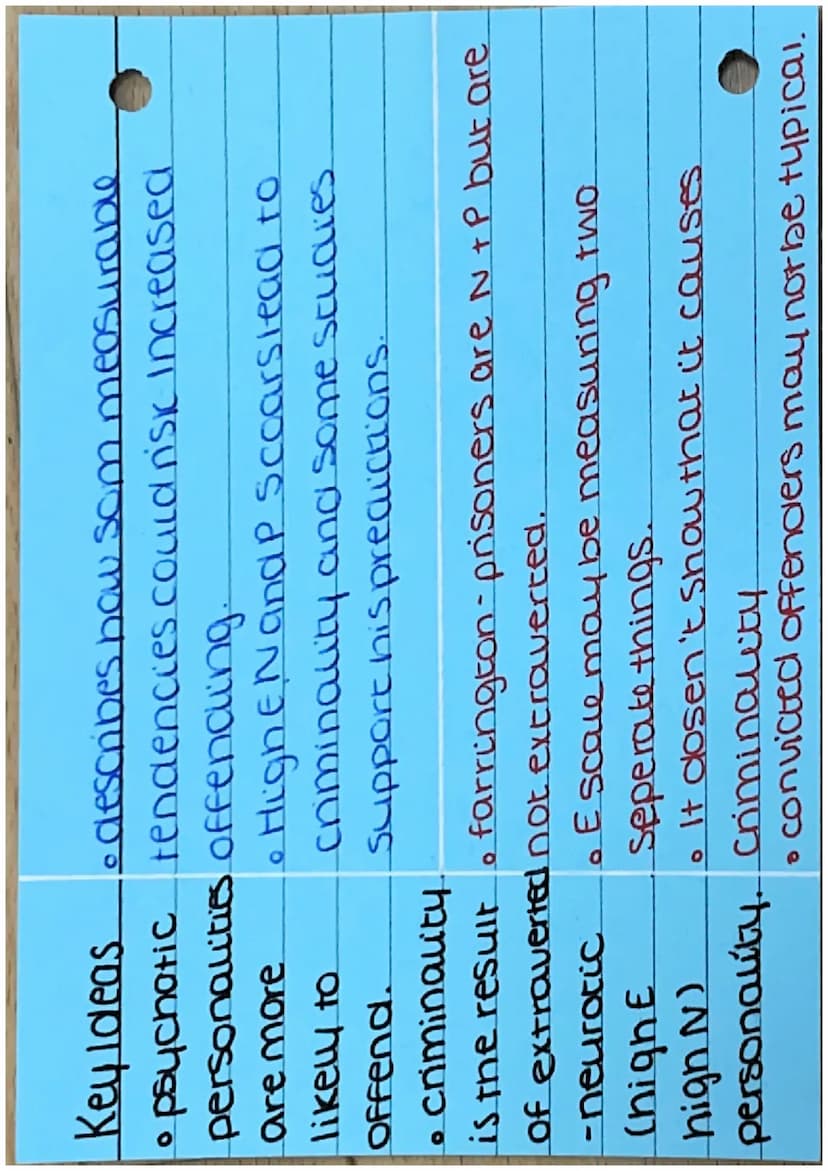 Key Ideas
• psychotic
personalities
are more
likely to
offend.
• criminality
is the result
of extraverted
-neurotic
(high E
high N)
personality.
• describes how som measurable
tendencies could risk increased
offending.
• High E N and P scoars lead to
criminality and some studies
support his predictions.
• farrington - prisoners are N + P but are
not extraverted.
• E scale may be measuring two
seperate things.
• It dosen't show that it causes
Criminality
• convicted offenders may not be typical.